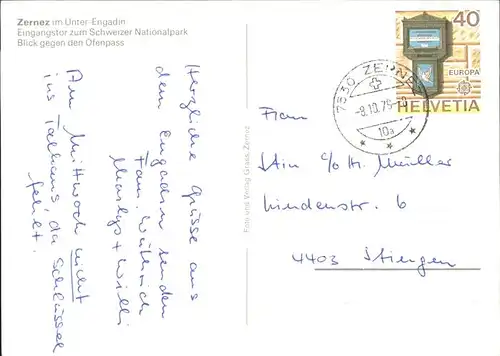 Zernez im Unter-Engadin
Eingangstor zum Schweizer Nationalpark
Blick gegen den Ofenpass
Herzliche Grüsse aus
dem Engadin senden
Fam. Wüthrich
+ Willi
Am Mittwoch nicht
ins Talhaus, da Schlüssel
fehlt.
Foto und Verlag Grass, Zernez
40
EUROPA
HELVETIA
7530 ZERNEZ
-8.10.79-
10a
Frau
c/o H. Müller
Lindenstr. 6
4403